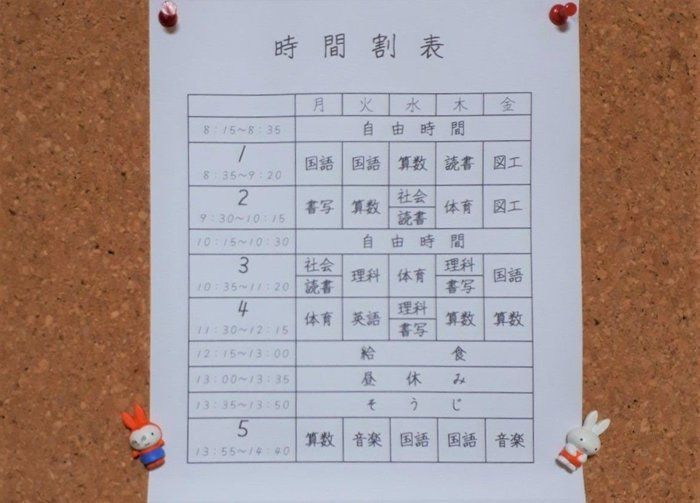 時間割表
月 火 水 木 金
8：15～8：35 自由時間
1 国語 国語 算数 読書 図工
8：35～9：20
2 書写 算数 社会 読書 体育 図工
9：30～10：15
10：15～10：30 自由時間
3 社会 読書 理科 体育 理科 書写 国語
10：35～11：20
4 体育 英語 理科 書写 算数 算数
11：30～12：15
12：15～13：00 給食
13：00～13：35 昼休み
13：35～13：50 そうじ
5 算数 音楽 国語 国語 音楽
13：55～14：40